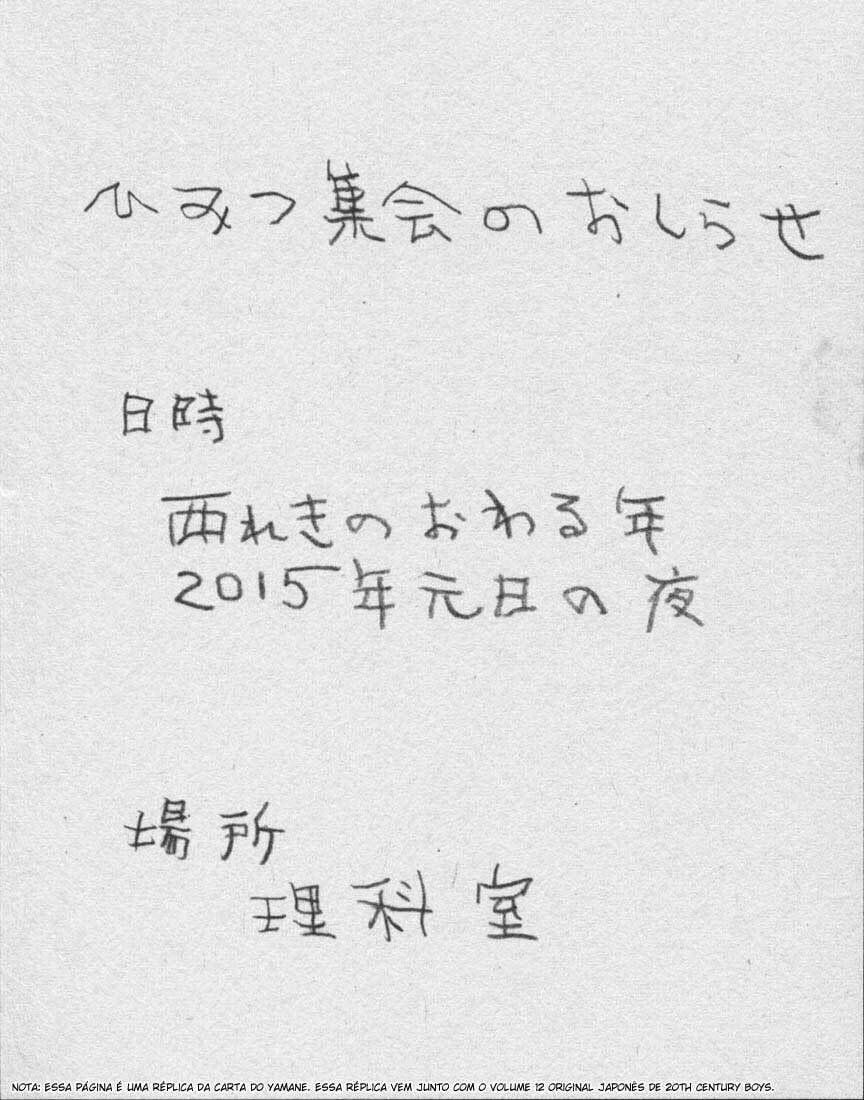 ひみつ集会のおしらせ
日時
西れきのおわる年
2015年元日の夜
場所
理科室
NOTA: ESSA PÁGINA É UMA RÉPLICA DA CARTA DO YAMANE. ESSA RÉPLICA VEM JUNTO COM O VOLUME 12 ORIGINAL JAPONÊS DE 20TH CENTURY BOYS.